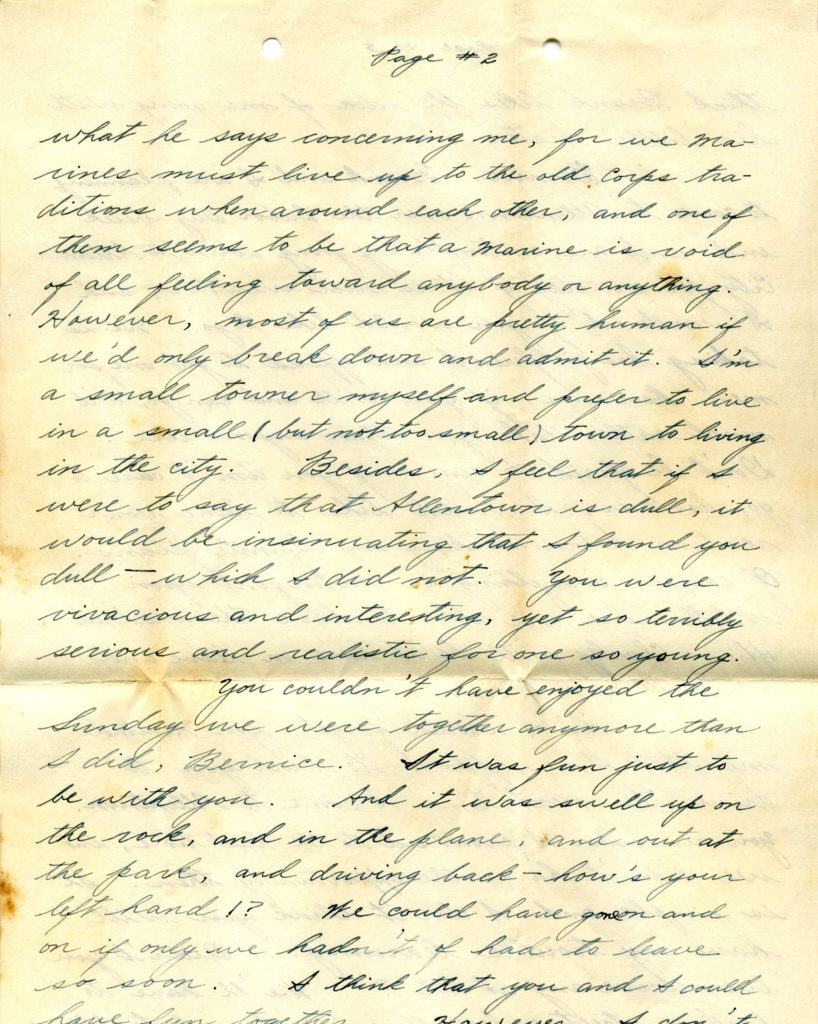 Page #2
what he says concerning me, for we Ma-
rines must live up to the old Corps tra-
ditions when around each other, and one of
them seems to be that a Marine is void
of all feeling toward anybody or anything.
However, most of us are pretty human if
we'd only break down and admit it. I'm
a small towner myself and prefer to live
in a small (but not too small) town to living
in the city. Besides, I feel that if I
were to say that Allentown is dull, it
would be insinuating that I found you
dull — which I did not. You were
vivacious and interesting, yet so terribly
serious and realistic for one so young.
You couldn't have enjoyed the
Sunday we were together anymore than
I did, Bernice. It was fun just to
be with you. And it was swell up on
the rock, and in the plane, and out at
the park, and driving back — how's your
left hand!? We could have gone on and
on if only we hadn't of had to leave
so soon. I think that you and I could
have fun together. However, I don't